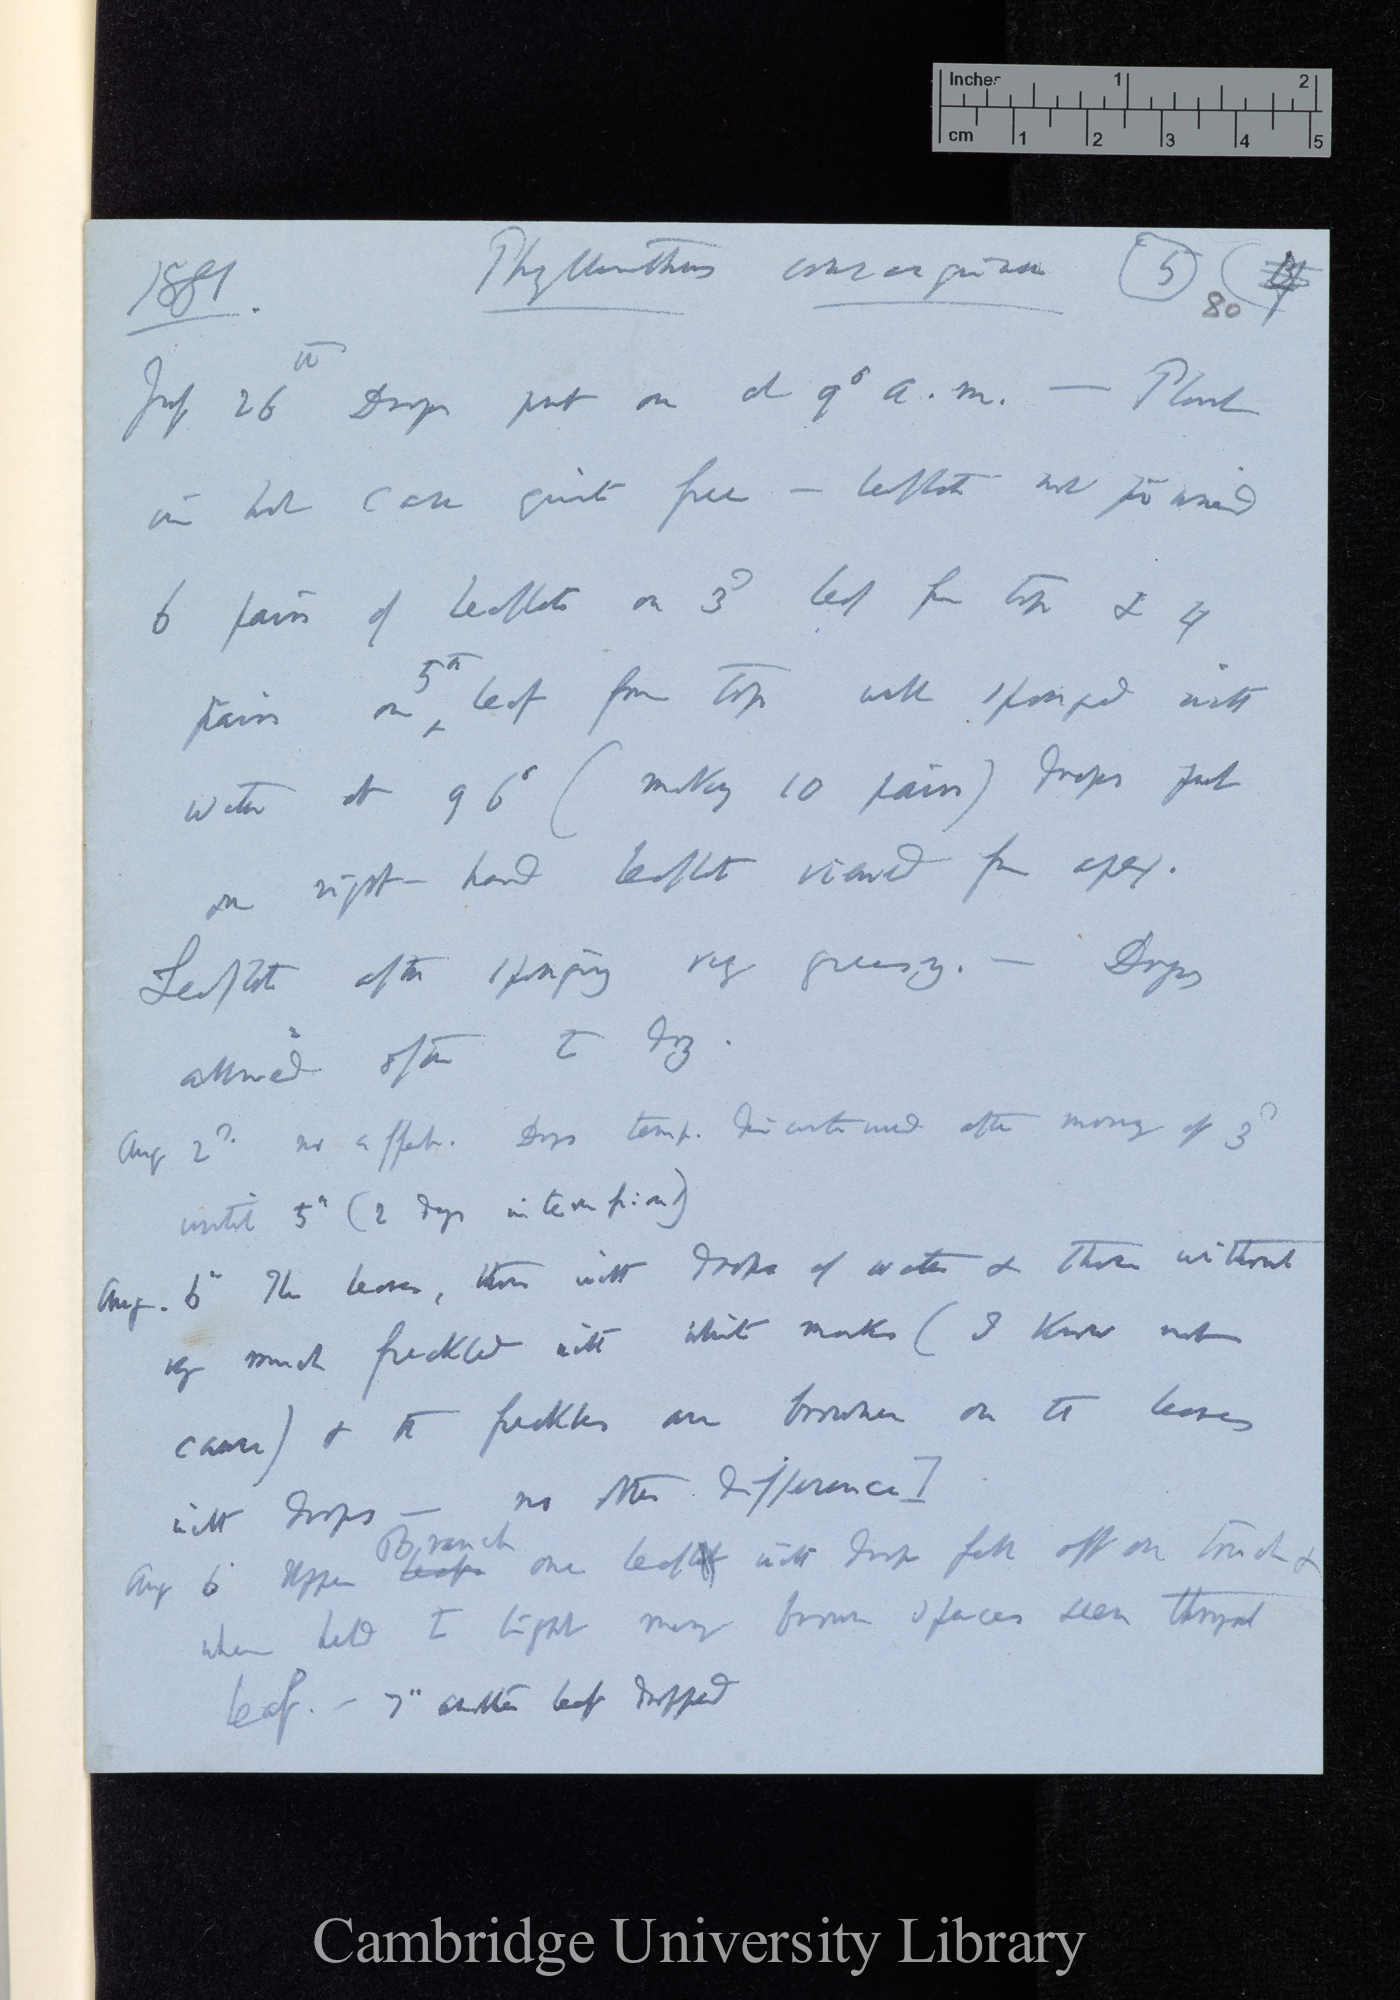 Inches 1 2
cm 1 2 3 4 5
1881. Phyllanthus 5
80
July 26th Drops put on at 9° a.m. — Plant
in hot case quite free — leaflets not pinned
6 pairs of leaflets on 3d leaf from top & 4
pairs on 5th leaf from top well sponged with
water at 96° (making 10 pairs) drops put
on right-hand leaflet viewed from apex.
Leaflets after sponging very greasy. — Drops
allowed often to dry.
Aug 2d. no effect. Drops temp. discontinued after morng of 3d
until 5th (2 days interruption)
Aug. 6th The leaves, those with drops of water & those without
very much freckled with white marks (I know not
cause) & the freckles are browner on the leaves
with drops — no other difference]
Aug 6 Upper Branch one leaf with drop fell off on touch &
when held to light many brown spaces seen through
leaf. — 7th another leaf dropped
Cambridge University Library